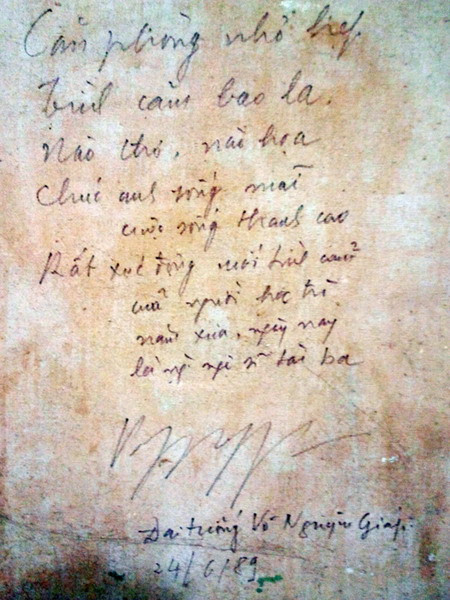 Căn phòng nhỏ hẹp
Tình cảm bao la.
Nào thơ, nào họa
Chúc anh sống mãi
cuộc sống thanh cao
Rất xúc động mối tình
của người học trò
năm xưa, ngày nay
là nghệ sĩ tài ba
Đại tướng Võ Nguyên Giáp
24/6/89